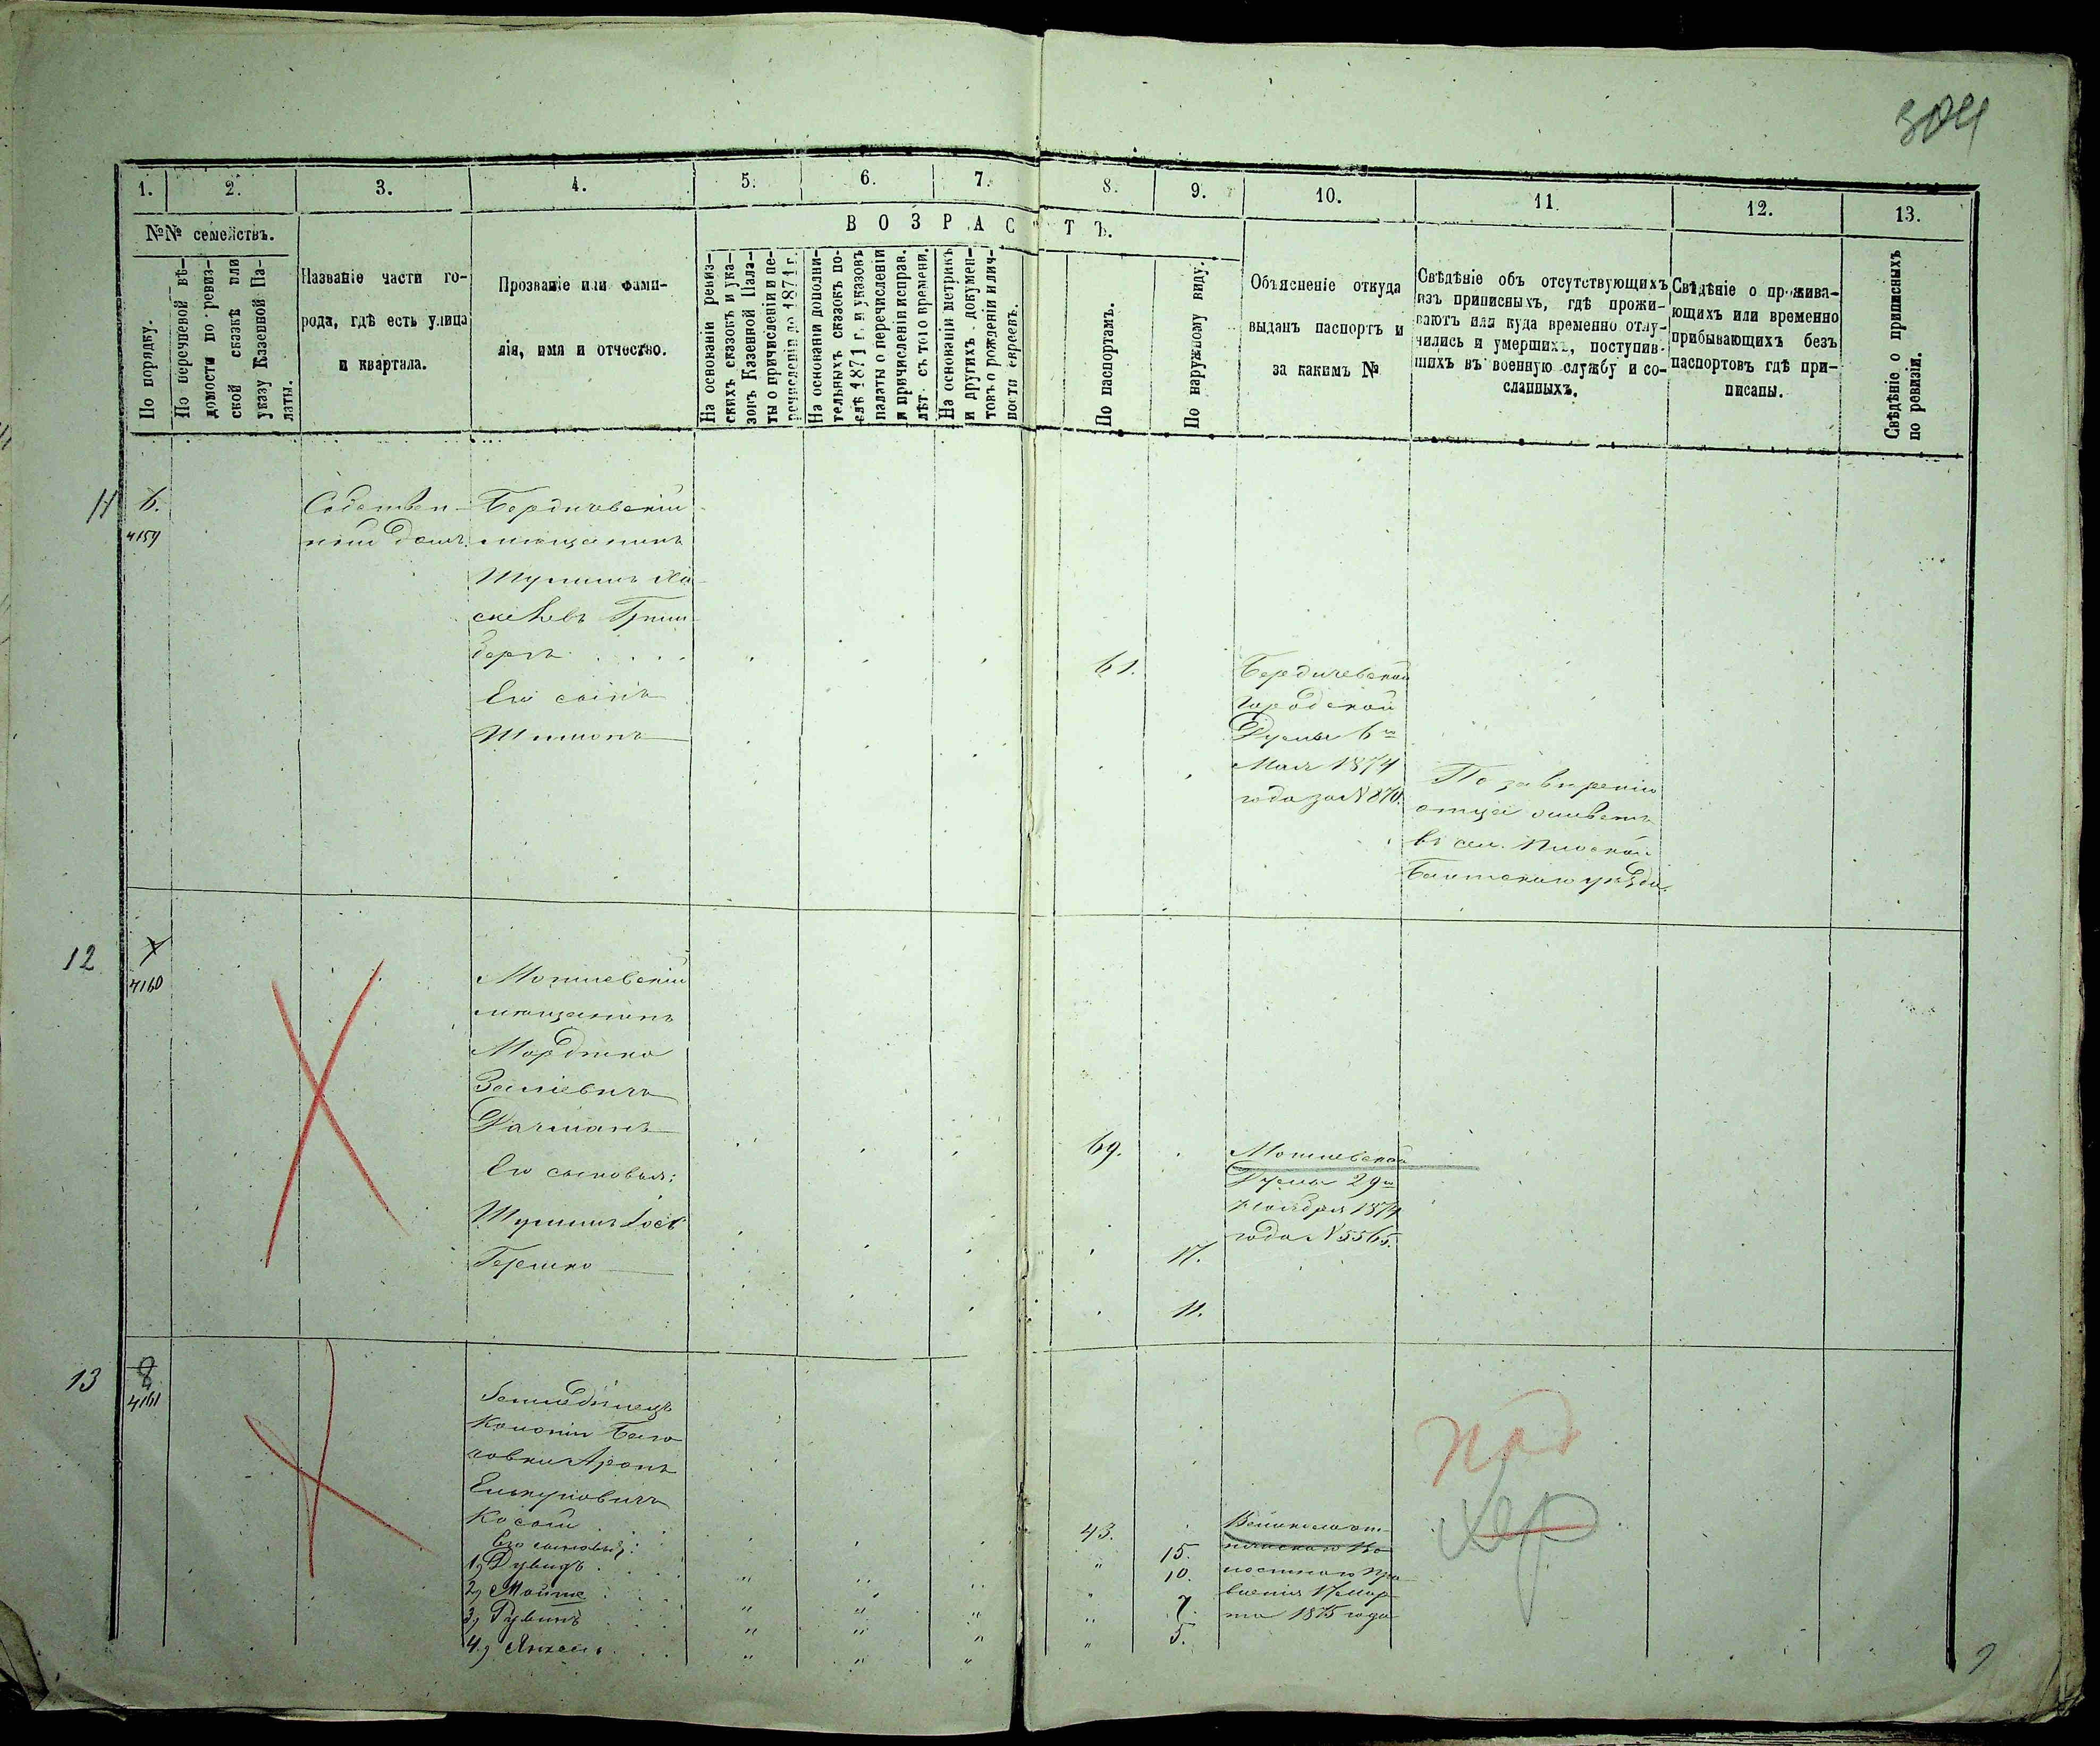 304
1. 2. 3. 4. 5. 6. 7. 8. 9. 10. 11. 12. 13.
№№ семействъ.
ВОЗРАСТЪ.
По порядку.
По перечневой вѣ-
домости по ревиз-
ской сказкѣ или
указу Казенной Па-
латы.
Названіе части го-
рода, гдѣ есть улица
и квартала.
Прозваніе или фами-
лія, имя и отчество.
На основаніи ревиз-
скихъ сказокъ и ука-
зокъ Казенной Пала-
ты о причисленіи и пе-
речисленіи до 1871 г.
На основаніи дополни-
тельныхъ сказокъ по-
слѣ 1871 г. и указовъ
палаты о перечисленіи
и причисленіи исправ.
лѣт. съ того времени.
На основаніи метрикъ
и другихъ докумен-
товъ о рожденіи и лич-
ности евреевъ.
По паспортамъ.
По наружному виду.
Объясненіе откуда
выданъ паспортъ и
за какимъ №
Свѣдѣніе объ отсутствующихъ
изъ приписныхъ, гдѣ прожи-
ваютъ или куда временно отлу-
чились и умершихъ, поступив-
шихъ въ военную службу и со-
сланныхъ.
Свѣдѣніе о прожива-
ющихъ или временно
прибывающихъ безъ
паспортовъ гдѣ при-
писаны.
Свѣдѣніе о приписныхъ
по ревизіи.
11 6.
4159
Собствен-
ный домъ.
Бердичевскій
мѣщанинъ
Шулимъ Ха-
скелевъ Грин-
бергъ
Его сынъ
Шимонъ
61.
Бердичевской
Городской
Думы 6го
Мая 1874
года за № 870.
По завѣренію
отца живетъ
въ сел. Плоской
Балтскаго уѣзда.
12 7
4160
Могилевскій
мѣщанинъ
Мордико
Зелievичъ
Дахманъ
Его сыновья:
Шулимъ Іось
Гершко
69.
17.
11.
Могилевской
Думы 29го
Ноября 1874
года № 5565.
13 8
4161
Землѣделецъ
Колоніи
Аронъ
Косой
Его сыновья:
1, Дувидъ
2, Мойше
3, Рувинъ
4, Янкель
43.
15.
10.
7.
5.
17 Мар-
та 1875 года
Под
Хер